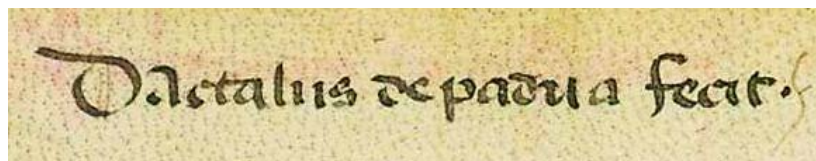 Dactalus de padua fecit.